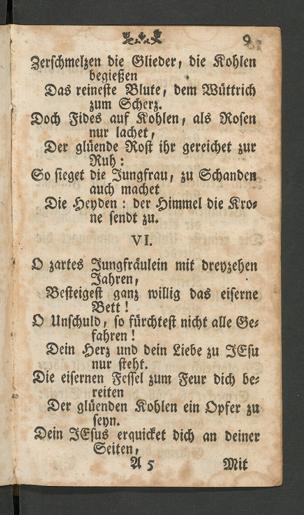 9
Zerschmelzen die Glieder, die Kohlen
begießen
Das reineste Blute, dem Wüttrich
zum Scherz.
Doch Fides auf Kohlen, als Rosen
nur lachet,
Der glüende Rost ihr gereichet zur
Ruh:
So sieget die Jungfrau, zu Schanden
auch machet
Die Heyden: der Himmel die Kro-
ne sendt zu.
VI.
O zartes Jungfräulein mit dreyzehen
Jahren,
Besteigest ganz willig das eiserne
Bett!
O Unschuld, so fürchtest nicht alle Ge-
fahren!
Dein Herz und dein Liebe zu JEsu
nur steht.
Die eisernen Fessel zum Feur dich be-
reiten
Der glüenden Kohlen ein Opfer zu
seyn.
Dein JEsus erquicket dich an deiner
Seiten,
A 5 Mit